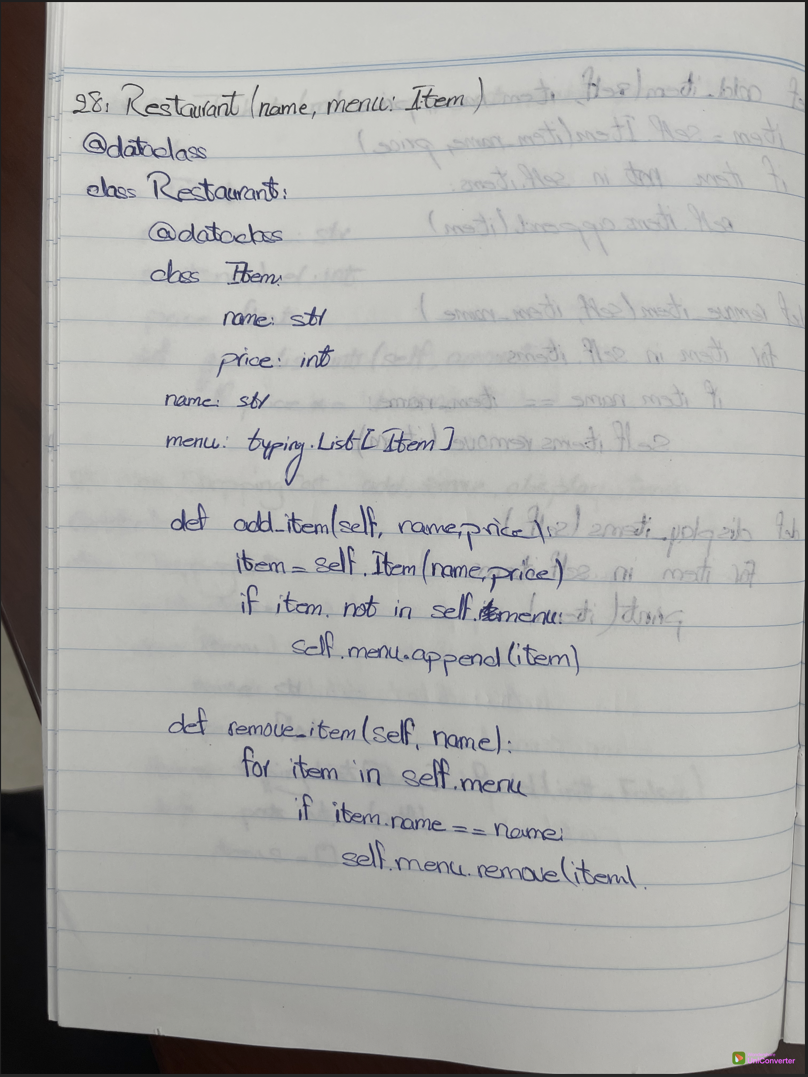 28. Restaurant (name, menu: Item)
@dataclass
class Restaurant:
@dataclass
class Item:
name: str
price: int
name: str
menu: typing.List[Item]
def add_item(self, name, price):
item = self.Item(name, price)
if item not in self.menu:
self.menu.append(item)
def remove_item(self, name):
for item in self.menu
if item.name == name:
self.menu.remove(item).
UniConverter